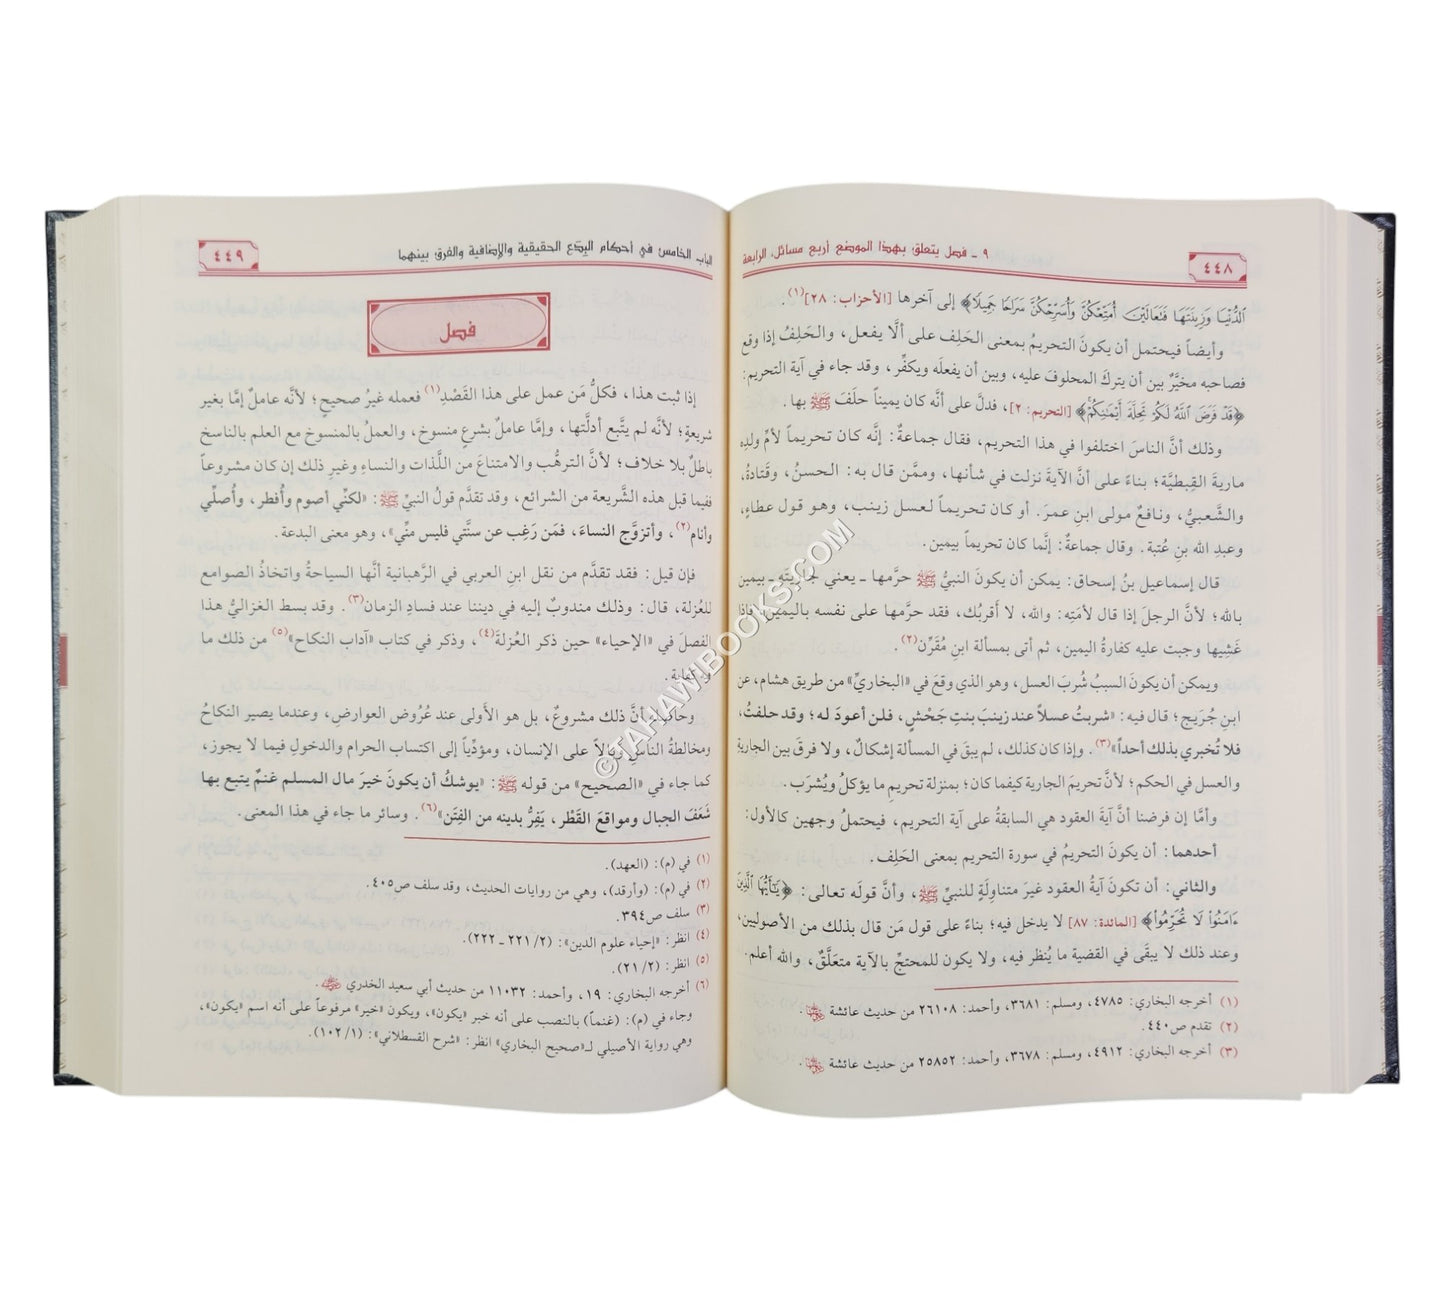 ٤٤٨
٩ ـ فصل يتعلق بهذا الموضع أربع مسائل، الرابعة
ٱلدُّنْيَا وَزِينَتَهَا فَتَعَالَيْنَ أُمَتِّعْكُنَّ وَأُسَرِّحْكُنَّ سَرَاحًا جَمِيلًا﴾ إلى آخرها [الأحزاب: ٢٨](١).
وأيضاً فيحتمل أن يكونَ التحريمُ بمعنى الحَلِف على ألَّا يفعل، والحَلِفُ إذا وقع
فصاحبه مخيَّرٌ بين أن يتركَ المحلوفَ عليه، وبين أن يفعلَه ويكفِّر، وقد جاء في آية التحريم:
﴿قَدْ فَرَضَ ٱللَّهُ لَكُمْ تَحِلَّةَ أَيْمَٰنِكُمْ﴾ [التحريم: ٢]، فدلَّ على أنَّه كان يميناً حلَفَ ﷺ بها.
وذلك أنَّ الناسَ اختلفوا في هذا التحريم، فقال جماعةٌ: إنَّه كان تحريماً لأمِّ ولدِه
ماريةَ القِبطيَّة؛ بناءً على أنَّ الآيةَ نزلت في شأنها، وممَّن قال به: الحسنُ، وقَتادةُ،
والشَّعبيُّ، ونافعٌ مولى ابنِ عمرَ. أو كان تحريماً لعسل زينب، وهو قول عطاءٍ،
وعبدِ الله بنِ عُتبة. وقال جماعةٌ: إنَّما كان تحريماً بيمين.
قال إسماعيل بنُ إسحاق: يمكن أن يكونَ النبيُّ ﷺ حرَّمها ـ يعني لجاريتَه ـ بيمين
بالله؛ لأنَّ الرجلَ إذا قال لأمَتِه: والله، لا أَقرَبُك، فقد حرَّمها على نفسه باليمين، فإذا
غَشِيها وجبت عليه كفارةُ اليمين، ثم أتى بمسألة ابنِ مُقَرِّن(٢).
ويمكن أن يكونَ السببُ شُربَ العسل، وهو الذي وقعَ في «البخاريِّ» من طريق هشام، عن
ابنِ جُرَيج؛ قال فيه: «شربتُ عسلاً عند زينبَ بنتِ جَحْشٍ، فلن أعودَ له؛ وقد حلفتُ،
فلا تُخبري بذلك أحداً»(٣). وإذا كان كذلك، لم يبقَ في المسألة إشكالٌ، ولا فرقَ بين الجارية
والعسل في الحكم؛ لأنَّ تحريمَ الجارية كيفما كان؛ بمنزلة تحريم ما يؤكلُ ويُشرَب.
وأمَّا إن فرضنا أنَّ آيةَ العقود هي السابقةُ على آية التحريم، فيحتملُ وجهين كالأول:
أحدهما: أن يكونَ التحريمُ في سورة التحريم بمعنى الحَلِف.
والثاني: أن تكونَ آيةُ العقود غيرَ متناوِلَةٍ للنبيِّ ﷺ، وأنَّ قولَه تعالى: ﴿يَٰٓأَيُّهَا ٱلَّذِينَ
ءَامَنُوا۟ لَا تُحَرِّمُوا۟﴾ [المائدة: ٨٧] لا يدخل فيه؛ بناءً على قول مَن قال بذلك من الأصوليين،
وعند ذلك لا يبقَى في القضية ما يُنظر فيه، ولا يكون للمحتجِّ بالآية متعَلَّقٌ، والله أعلم.
(١) أخرجه البخاري: ٤٧٨٥، ومسلم: ٣٦٨١، وأحمد: ٢٦١٠٨ من حديث عائشة.
(٢) تقدم ص٤٤٠.
(٣) أخرجه البخاري: ٤٩١٢، ومسلم: ٣٦٧٨، وأحمد: ٢٥٨٥٢ من حديث عائشة.
الباب الخامس في أحكام البِدَع الحقيقية والإضافية والفرق بينهما
٤٤٩
فصل
إذا ثبت هذا، فكلُّ مَن عمل على هذا القَصْدِ(١) فعمله غيرُ صحيحٍ؛ لأنَّه عاملٌ إمَّا بغير
شريعةٍ؛ لأنَّه لم يتَّبع أدلَّتها، وإمَّا عاملٌ بشرعٍ منسوخ، والعملُ بالمنسوخ مع العلم بالناسخ
باطلٌ بلا خلاف؛ لأنَّ الترهُّب والامتناعَ من اللَّذات والنساءِ وغيرِ ذلك إن كان مشروعاً
ففيما قبل هذه الشَّريعة من الشرائع، وقد تقدَّم قولُ النبيِّ ﷺ: «لكنِّي أصوم وأُفطر، وأُصلِّي
وأنام(٢)، وأتزوَّج النساءَ، فمَن رَغِب عن سنَّتي فليس منِّي»، وهو معنى البدعة.
فإن قيل: فقد تقدَّم من نقل ابنِ العربي في الرَّهبانية أنَّها السياحةُ واتخاذُ الصوامع
للعُزلة، قال: وذلك مندوبٌ إليه في ديننا عند فسادِ الزمان(٣). وقد بسط الغزاليُّ هذا
الفصلَ في «الإحياء» حين ذكر العُزلةَ(٤)، وذكر في كتاب «آداب النكاح»(٥) من ذلك ما
فيه كفاية.
وحاصله أنَّ ذلك مشروعٌ، بل هو الأَولى عند عُرُوض العوارض، وعندما يصير النكاحُ
ومخالطةُ الناس وبالاً على الإنسان، ومؤدِّياً إلى اكتساب الحرام والدخولِ فيما لا يجوز،
كما جاء في «الصحيح» من قوله ﷺ: «يوشكُ أن يكونَ خيرَ مال المسلم غنمٌ يتبع بها
شَعَفَ الجبال ومواقعَ القَطْر، يَفِرُّ بدينه من الفِتَن»(٦). وسائر ما جاء في هذا المعنى.
(١) في (م): (العهد).
(٢) في (م): (وأرقد)، وهي من روايات الحديث، وقد سلف ص٤٠٥.
(٣) سلف ص٣٩٤.
(٤) انظر: «إحياء علوم الدين»: (٢/ ٢٢١ ـ ٢٢٢).
(٥) انظر: (٢/ ٢١).
(٦) أخرجه البخاري: ١٩، وأحمد: ١١٠٣٢ من حديث أبي سعيد الخدري.
وجاء في (م): (غنماً) بالنصب على أنه خبر «يكون»، ويكون «خير» مرفوعاً على أنه اسم «يكون»،
وهي رواية الأصيلي لـ«صحيح البخاري» انظر: «شرح القسطلاني»: (١/ ١٠٢).
©TAHAWIBOOKS.COM